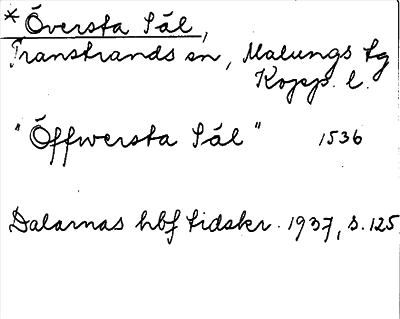 * Översta Säl,
Transtrands sn, Malungs tg
Kopp. l.
"Öffwersta Säl" 1536
Dalarnas hbf tidskr. 1937, s. 125